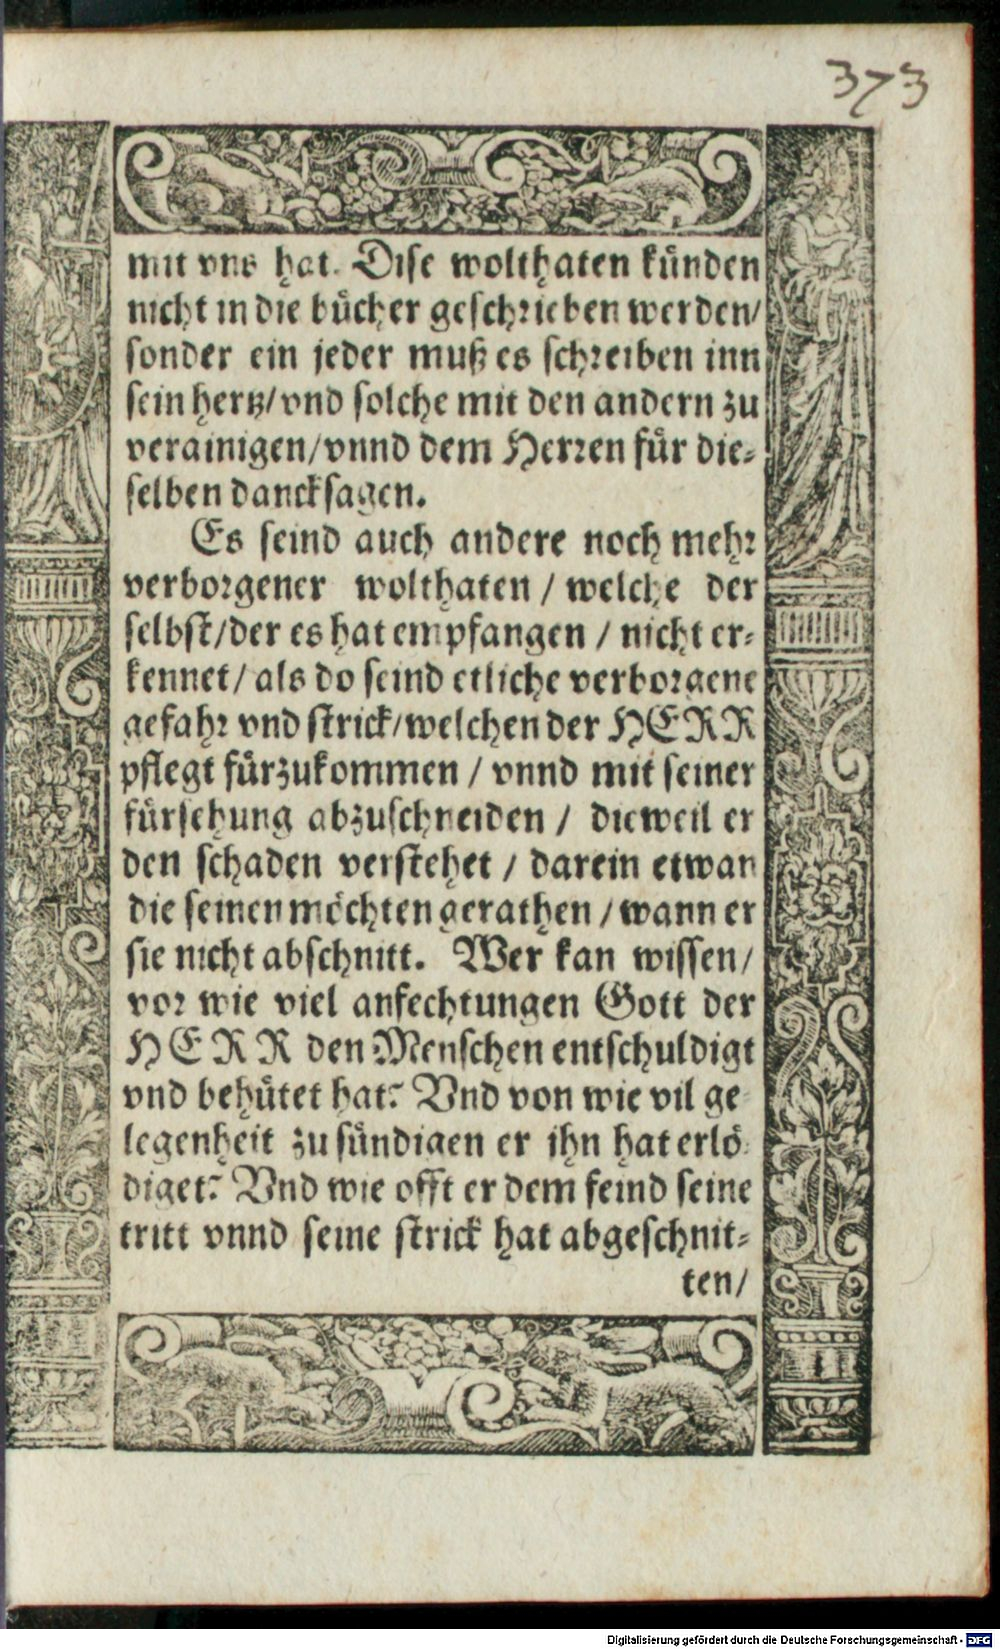 373
mit vns hat. Dise wolthaten künden
nicht in die bücher geschrieben werden/
sonder ein jeder muß es schreiben inn
sein hertz/vnd solche mit den andern zu
verainigen/vnnd dem Herren für die-
selben dancksagen.
Es seind auch andere noch mehr
verborgener wolthaten / welche der
selbst/der es hat empfangen / nicht er-
kennet/ als do seind etliche verborgene
gefahr vnd strick/welchen der HERR
pflegt fürzukommen / vnnd mit seiner
fürsehung abzuschneiden / dieweil er
den schaden verstehet / darein etwan
die seinen möchten gerathen / wann er
sie nicht abschnitt. Wer kan wissen/
vor wie viel anfechtungen Gott der
HERR den Menschen entschuldigt
vnd behütet hat? Vnd von wie vil ge
legenheit zu sündigen er ihn hat erlö-
diget? Vnd wie offt er dem feind seine
tritt vnnd seine strick hat abgeschnit-
ten/
Digitalisierung gefördert durch die Deutsche Forschungsgemeinschaft - DFG